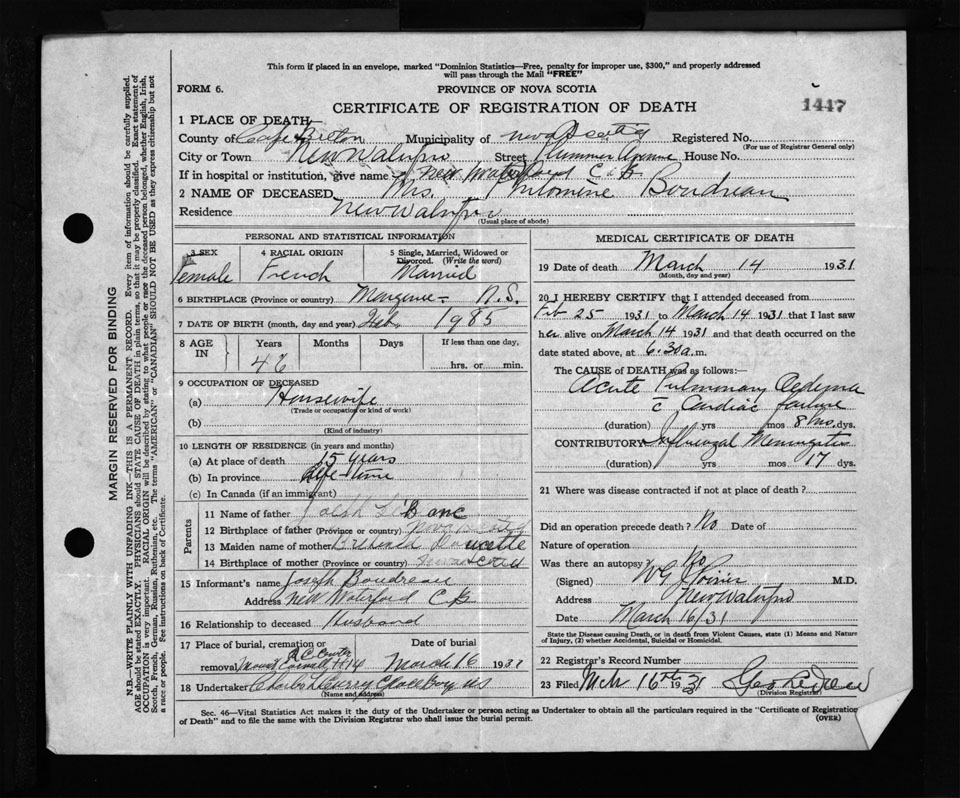 This form if placed in an envelope, marked "Dominion Statistics—Free, penalty for improper use, $300," and properly addressed
will pass through the Mail "FREE"
FORM 6.
PROVINCE OF NOVA SCOTIA
1447
CERTIFICATE OF REGISTRATION OF DEATH
1 PLACE OF DEATH
County of Cape Breton Municipality of Nova Scotia Registered No.
(For use of Registrar General only)
City or Town Street Plummer Avenue House No.
If in hospital or institution, give name New Waterford C B
2 NAME OF DECEASED Mrs. Philomine Boudreau
Residence
(Usual place of abode)
PERSONAL AND STATISTICAL INFORMATION
3 SEX 4 RACIAL ORIGIN 5 Single, Married, Widowed or Divorced. (Write the word)
Female French Married
6 BIRTHPLACE (Province or country) Margaree - N.S.
7 DATE OF BIRTH (month, day and year) Feb. 1985
8 AGE IN Years Months Days If less than one day,
46 hrs. or min.
9 OCCUPATION OF DECEASED
(a) Housewife
(Trade or occupation or kind of work)
(b)
(Kind of industry)
10 LENGTH OF RESIDENCE (in years and months)
(a) At place of death 15 years
(b) In province Life-time
(c) In Canada (if an immigrant)
Parents
11 Name of father LeBlanc
12 Birthplace of father (Province or country) Nova Scotia
13 Maiden name of mother Doucette
14 Birthplace of mother (Province or country) Nova Scotia
15 Informant's name Joseph Boudreau
Address New Waterford C B
16 Relationship to deceased Husband
17 Place of burial, cremation or Date of burial
removal Mount Carmel March 16 1931
18 Undertaker Charles
(Name and address)
MEDICAL CERTIFICATE OF DEATH
19 Date of death March 14 1931
(Month, day and year)
20 I HEREBY CERTIFY that I attended deceased from
Feb 25 1931 to March 14 1931 that I last saw
her alive on March 14 1931 and that death occurred on the
date stated above, at 6.30 a.m.
The CAUSE of DEATH was as follows:—
Acute Pulmonary Oedema
c̄ Cardiac failure
(duration) yrs mos 8 dys.
CONTRIBUTORY Influenzal Meningitis
(duration) yrs mos 17 dys.
21 Where was disease contracted if not at place of death?
Did an operation precede death? No Date of
Nature of operation
Was there an autopsy No
(Signed) W G Poirier M.D.
Address
Date March 16/31
State the Disease causing Death, or in death from Violent Causes, state (1) Means and Nature
of Injury, (2) whether Accidental, Suicidal or Homicidal.
22 Registrar's Record Number
23 Filed Mch 16th 1931 Geo
(Division Registrar)
Sec. 46—Vital Statistics Act makes it the duty of the Undertaker or person acting as Undertaker to obtain all the particulars required in the "Certificate of Registration
of Death" and to file the same with the Division Registrar who shall issue the burial permit. (OVER)
MARGIN RESERVED FOR BINDING
N.B.—WRITE PLAINLY WITH UNFADING INK—THIS IS A PERMANENT RECORD. Every item of information should be carefully supplied.
AGE should be stated EXACTLY. PHYSICIANS should STATE CAUSE OF DEATH in plain terms, so that it may be properly classified. Exact statement of
OCCUPATION is very important. RACIAL ORIGIN will be described by stating to what people or race the deceased person belonged, whether English, Irish,
Scotch, French, German, Russian, Ruthenian, etc. The terms "AMERICAN" or "CANADIAN" SHOULD NOT BE USED as they express citizenship but not
a race or people. See instructions on back of Certificate.